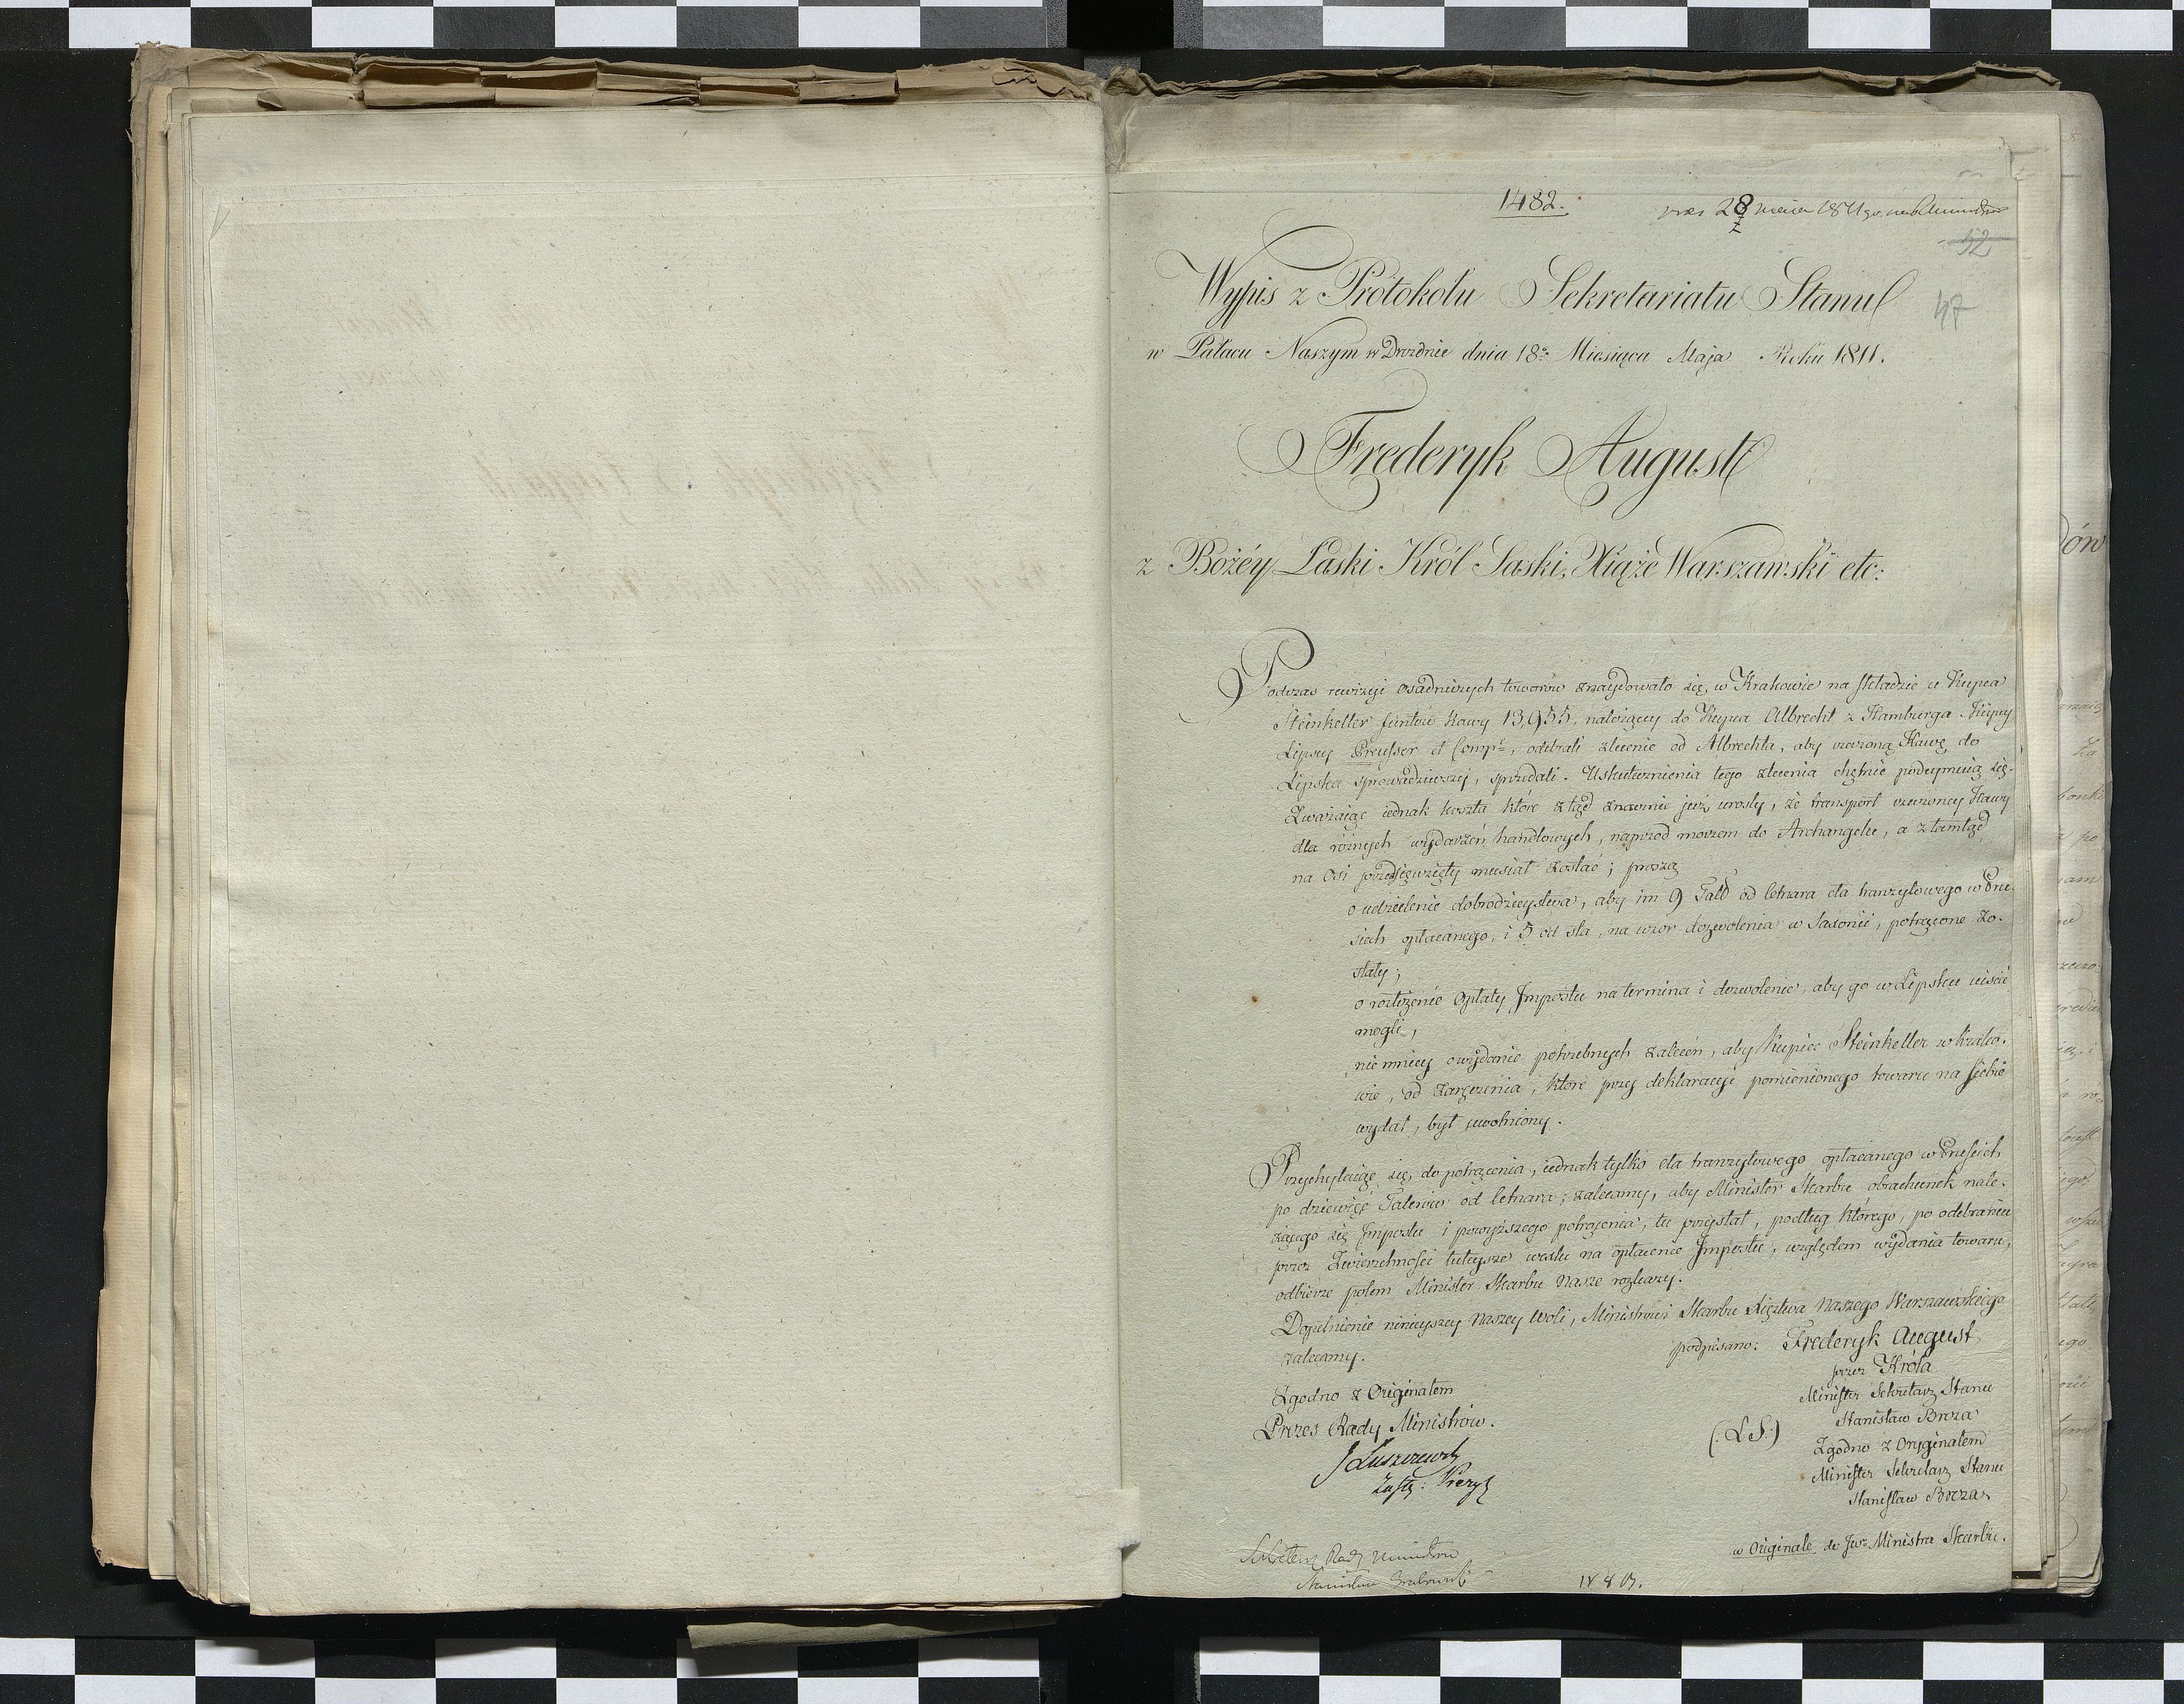 1482.
28 1811
52
47
Wypis z Protokołu Sekretariatu Stanu
w Pałacu Naszym w Dreznie dnia 18º Miesiąca Maja Roku 1811.
Frederyk August
z Bożéy Łaski Król Saski, Xiąże Warszawski etc:
Podczas rewizyi osadniczych towarów znaydowało się, w Krakowie na składzie u Kupca
Steinkeller funtów kawy 13,955, należący do Kupca Albrecht z Hamburga. Kupcy
Lipscy Preusser et Compe, odebrali zlecenie od Albrechta, aby rzeczoną Kawę do
Lipska sprowadziwszy, sprzedali. Uskutecznienia tego zlecenia chętnie podeymuią się.
Zważaiąc iednak koszta które ztąd znacznie już urosły, że transport rzeczoney Kawy
dla różnych wydarzeń handlowych, naprzód morzem do Archangelu, a ztamtąd
na osi przedsięwzięty musiał zostać; proszą
o udzielenie dobrodzieystwa, aby im 9 Tal od letnara cła tranzytowego w Pru-
siech opłacanego, i 5 od sta, na wzor dozwolenia w Saxonii, potrącone zo-
stały;
o rozłożenie Opłaty Impostu na termina i dozwolenie, aby go w Lipsku uiścić
mogli,
niemniey o wydanie potrzebnych zaleceń, aby Kupiec Steinkeller w Krako-
wie, od zaręczenia, które przy deklaracyi pomienionego towaru na siebie
wydał, był uwolniony.
Przychylaiąc się, do potrącenia, iednak tylko cła tranzytowego opłacanego w Prusiech
po dziewięć Talerów od letnara; zalecamy, aby Minister Skarbu obrachunek nale-
żącego się Impostu i powyższego potrącenia, tu przysłał, podług którego, po odebraniu
przez Zwierzchności tuteysze wexlu na opłacenie Impostu, względem wydania towaru,
odbierze potem Minister Skarbu Nasze rozkazy.
Dopełnienie ninieyszey Naszey Woli, Ministrowi Skarbu Xięztwa Naszego Warszawskiego
zalecamy.
podpisano: Frederyk August
przez Króla
Minister Sekretarz Stanu
Stanisław Breza
(: L.S:)
Zgodno z Oryginałem
Minister Sekretarz Stanu
Stanisław Breza
Zgodno z Originałem
Prezes Rady Ministrów.
J Łuszczewski
Zastę: Prezyd
w Originale do Jw. Ministra Skarbu.
Sekretarz Rady Ministrów
Stanisław Grabowski